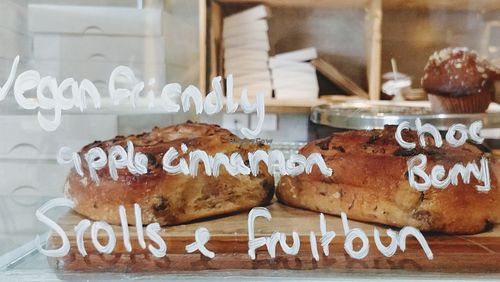 Vegan friendly
apple cinnamon
choc
Berry
Scrolls & fruitbun